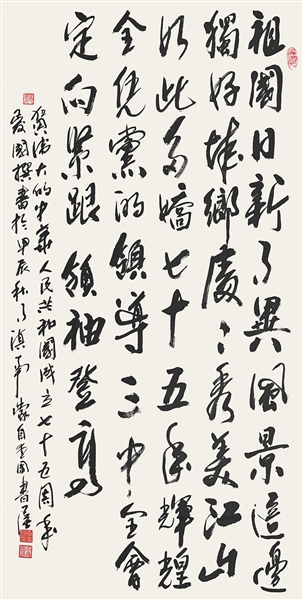 祖國日新月異風景這邊
獨好城鄉處〻秀美江山
如此多嬌七十五年輝煌
全凭黨的領導三中全會
定向緊跟領袖登高
賀偉大的中華人民共和國成立七十五周年
愛國撰書於甲辰秋月滇南蒙自書屋